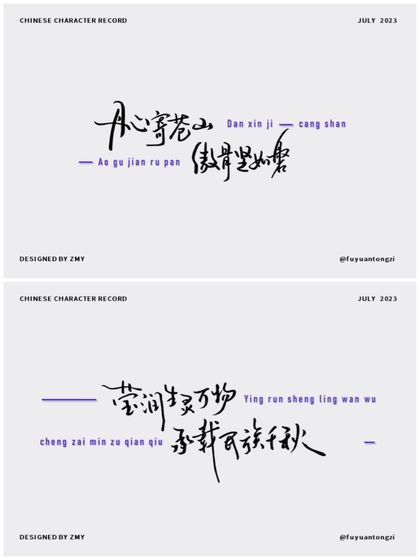 CHINESE CHARACTER RECORD JULY 2023
丹心寄苍山 Dan xin ji — cang shan
— Ao gu jian ru pan 傲骨坚如磐
DESIGNED BY ZMY @fuyuantongzi
CHINESE CHARACTER RECORD JULY 2023
莹润生灵万物 Ying run sheng ling wan wu
cheng zai min zu qian qiu 承载民族千秋
DESIGNED BY ZMY @fuyuantongzi